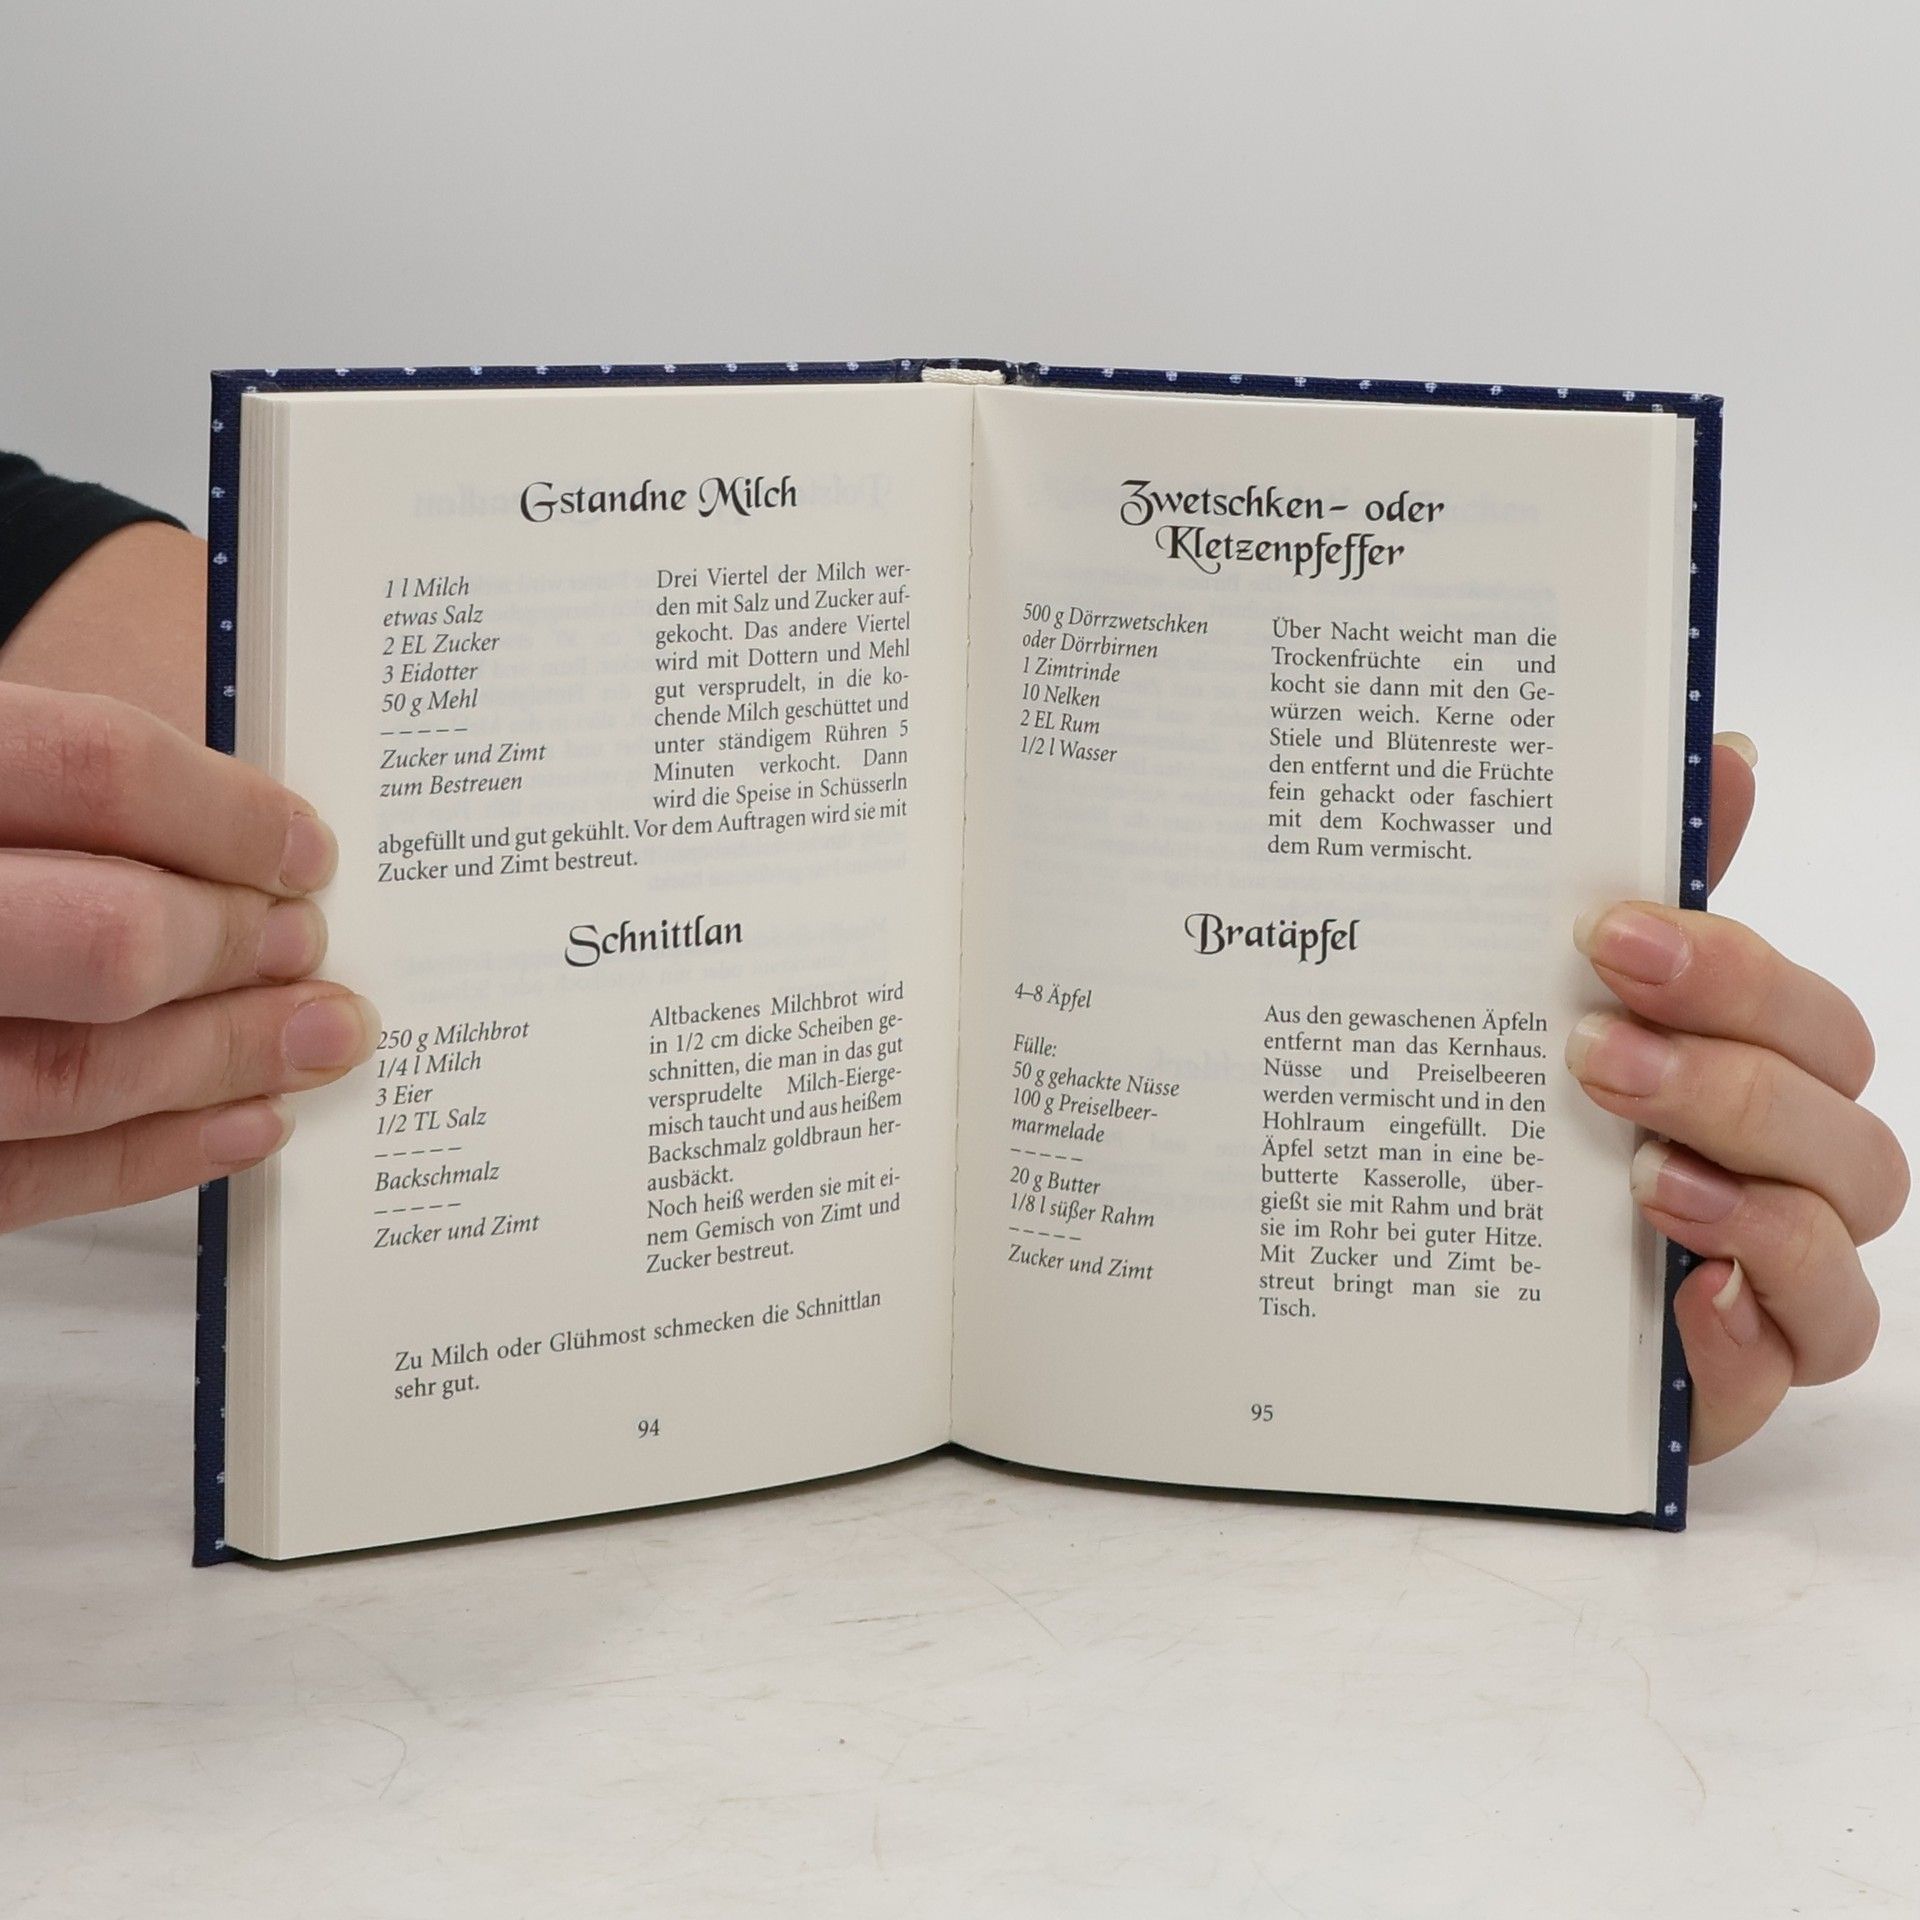 Gstandne Milch
1 l Milch
etwas Salz
2 EL Zucker
3 Eidotter
50 g Mehl
– – – – –
Zucker und Zimt
zum Bestreuen
Drei Viertel der Milch wer-
den mit Salz und Zucker auf-
gekocht. Das andere Viertel
wird mit Dottern und Mehl
gut versprudelt, in die ko-
chende Milch geschüttet und
unter ständigem Rühren 5
Minuten verkocht. Dann
wird die Speise in Schüsserln
abgefüllt und gut gekühlt. Vor dem Auftragen wird sie mit
Zucker und Zimt bestreut.
Schnittlan
250 g Milchbrot
1/4 l Milch
3 Eier
1/2 TL Salz
– – – – –
Backschmalz
– – – – –
Zucker und Zimt
Altbackenes Milchbrot wird
in 1/2 cm dicke Scheiben ge-
schnitten, die man in das gut
versprudelte Milch-Eierge-
misch taucht und aus heißem
Backschmalz goldbraun her-
ausbäckt.
Noch heiß werden sie mit ei-
nem Gemisch von Zimt und
Zucker bestreut.
Zu Milch oder Glühmost schmecken die Schnittlan
sehr gut.
94
Zwetschken- oder
Kletzenpfeffer
500 g Dörrzwetschken
oder Dörrbirnen
1 Zimtrinde
10 Nelken
2 EL Rum
1/2 l Wasser
Über Nacht weicht man die
Trockenfrüchte ein und
kocht sie dann mit den Ge-
würzen weich. Kerne oder
Stiele und Blütenreste wer-
den entfernt und die Früchte
fein gehackt oder faschiert
mit dem Kochwasser und
dem Rum vermischt.
Bratäpfel
4–8 Äpfel
Fülle:
50 g gehackte Nüsse
100 g Preiselbeer-
marmelade
– – – – –
20 g Butter
1/8 l süßer Rahm
– – – – –
Zucker und Zimt
Aus den gewaschenen Äpfeln
entfernt man das Kernhaus.
Nüsse und Preiselbeeren
werden vermischt und in den
Hohlraum eingefüllt. Die
Äpfel setzt man in eine be-
butterte Kasserolle, über-
gießt sie mit Rahm und brät
sie im Rohr bei guter Hitze.
Mit Zucker und Zimt be-
streut bringt man sie zu
Tisch.
95